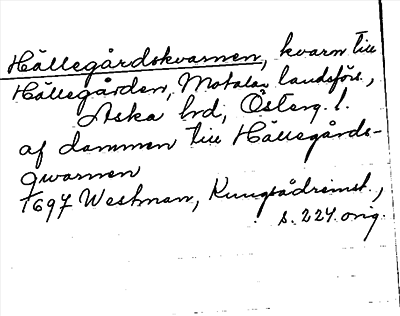 Hällegårdskvarnen, kvarn till
Hällegården, Motala landsförs.,
Aska hrd, Österg. l.
af dammen till Hällegårds-
qwarnen
1697 Westman, Kungsådreinst.,
s. 224 orig.